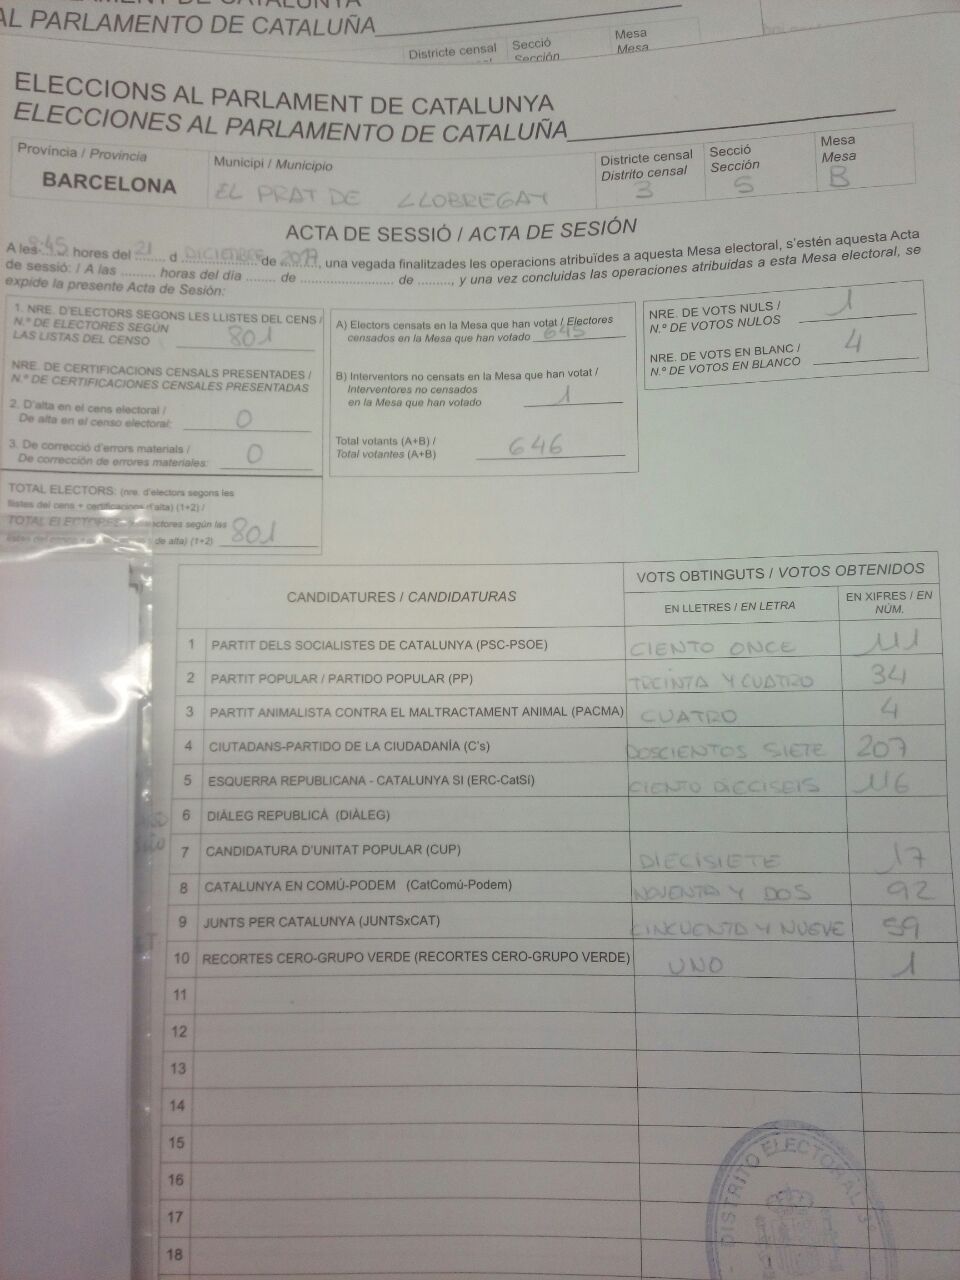 AL PARLAMENTO DE CATALUÑA
Districte censal
Secció
Sección
Mesa
Mesa
ELECCIONS AL PARLAMENT DE CATALUNYA
ELECCIONES AL PARLAMENTO DE CATALUÑA
Província / Provincia
BARCELONA
Municipi / Municipio
EL PRAT DE LLOBREGAT
Districte censal
Distrito censal
3
Secció
Sección
5
Mesa
Mesa
B
ACTA DE SESSIÓ / ACTA DE SESIÓN
A les ........ hores del 21 d DICIEMBRE de 2017, una vegada finalitzades les operacions atribuïdes a aquesta Mesa electoral, s'estén aquesta Acta
de sessió: / A las ......... horas del día ........ de ........................ de ........, y una vez concluidas las operaciones atribuidas a esta Mesa electoral, se
expide la presente Acta de Sesión:
1. NRE. D'ELECTORS SEGONS LES LLISTES DEL CENS /
N.º DE ELECTORES SEGÚN
LAS LISTAS DEL CENSO 801
NRE. DE CERTIFICACIONS CENSALS PRESENTADES /
N.º DE CERTIFICACIONES CENSALES PRESENTADAS
2. D'alta en el cens electoral /
De alta en el censo electoral: 0
3. De correcció d'errors materials /
De corrección de errores materiales: 0
TOTAL ELECTORS: (nre. d'electors segons les
llistes del cens + certificacions d'alta) (1+2) /
TOTAL ELECTORES: electores según las
de alta) (1+2) 801
A) Electors censats en la Mesa que han votat / Electores
censados en la Mesa que han votado 645
B) Interventors no censats en la Mesa que han votat /
Interventores no censados
en la Mesa que han votado 1
Total votants (A+B) /
Total votantes (A+B) 646
NRE. DE VOTS NULS /
N.º DE VOTOS NULOS 1
NRE. DE VOTS EN BLANC /
N.º DE VOTOS EN BLANCO 4
CANDIDATURES / CANDIDATURAS
VOTS OBTINGUTS / VOTOS OBTENIDOS
EN LLETRES / EN LETRA
EN XIFRES / EN
NÚM.
1 PARTIT DELS SOCIALISTES DE CATALUNYA (PSC-PSOE) CIENTO ONCE 111
2 PARTIT POPULAR / PARTIDO POPULAR (PP) TREINTA Y CUATRO 34
3 PARTIT ANIMALISTA CONTRA EL MALTRACTAMENT ANIMAL (PACMA) CUATRO 4
4 CIUTADANS-PARTIDO DE LA CIUDADANÍA (C's) DOSCIENTOS SIETE 207
5 ESQUERRA REPUBLICANA - CATALUNYA SI (ERC-CatSí) CIENTO DIECISEIS 116
6 DIÀLEG REPUBLICÀ (DIÀLEG)
7 CANDIDATURA D'UNITAT POPULAR (CUP) DIECISIETE 17
8 CATALUNYA EN COMÚ-PODEM (CatComú-Podem) NOVENTA Y DOS 92
9 JUNTS PER CATALUNYA (JUNTSxCAT) CINCUENTA Y NUEVE 59
10 RECORTES CERO-GRUPO VERDE (RECORTES CERO-GRUPO VERDE) UNO 1
11
12
13
14
15
16
17
18
DISTRITO ELECTORAL 3